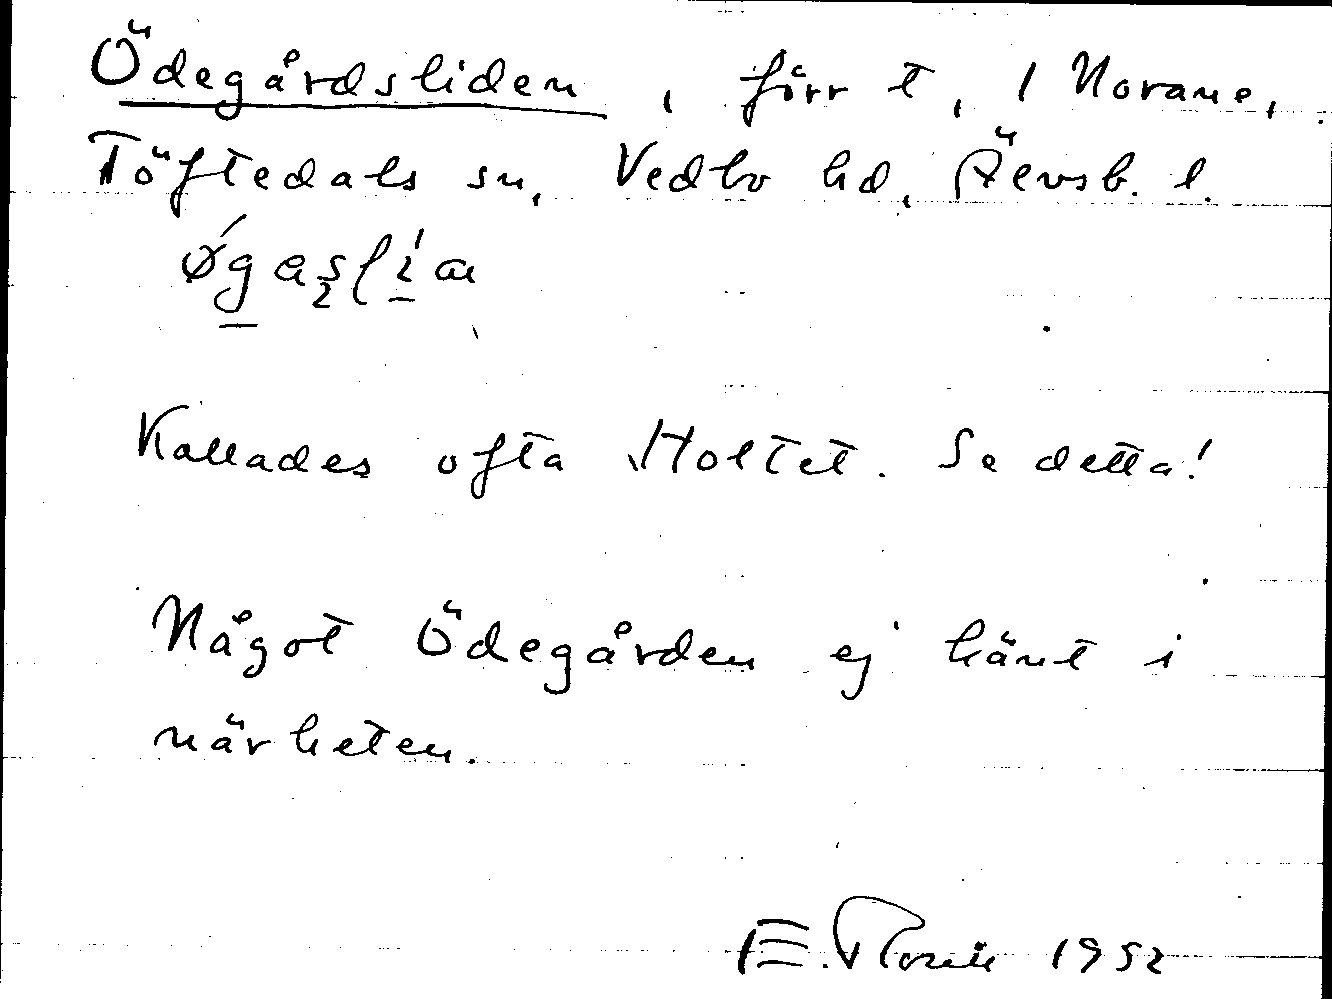 Ödegårdsliden, förr t, 1 Norane,
Töftedals sn, Vedbo hd, Älvsb. l.
Kallades ofta Holtet. Se detta!
Något Ödegården ej känt i
närheten.
E. 1952